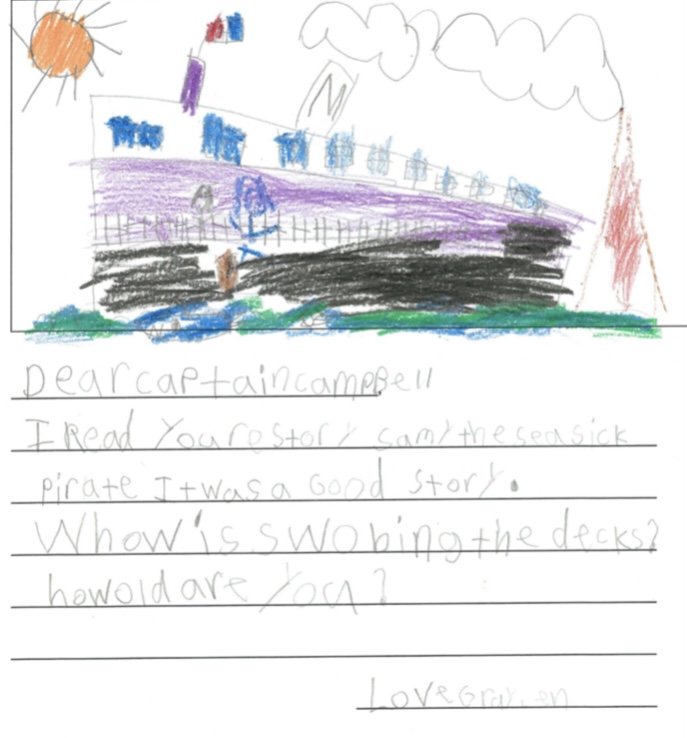 M
Dear captain campBell
I Read Youre story samy the seasick
pirate It was a Good story.
Whow is swobing the decks?
how old are You?
Love